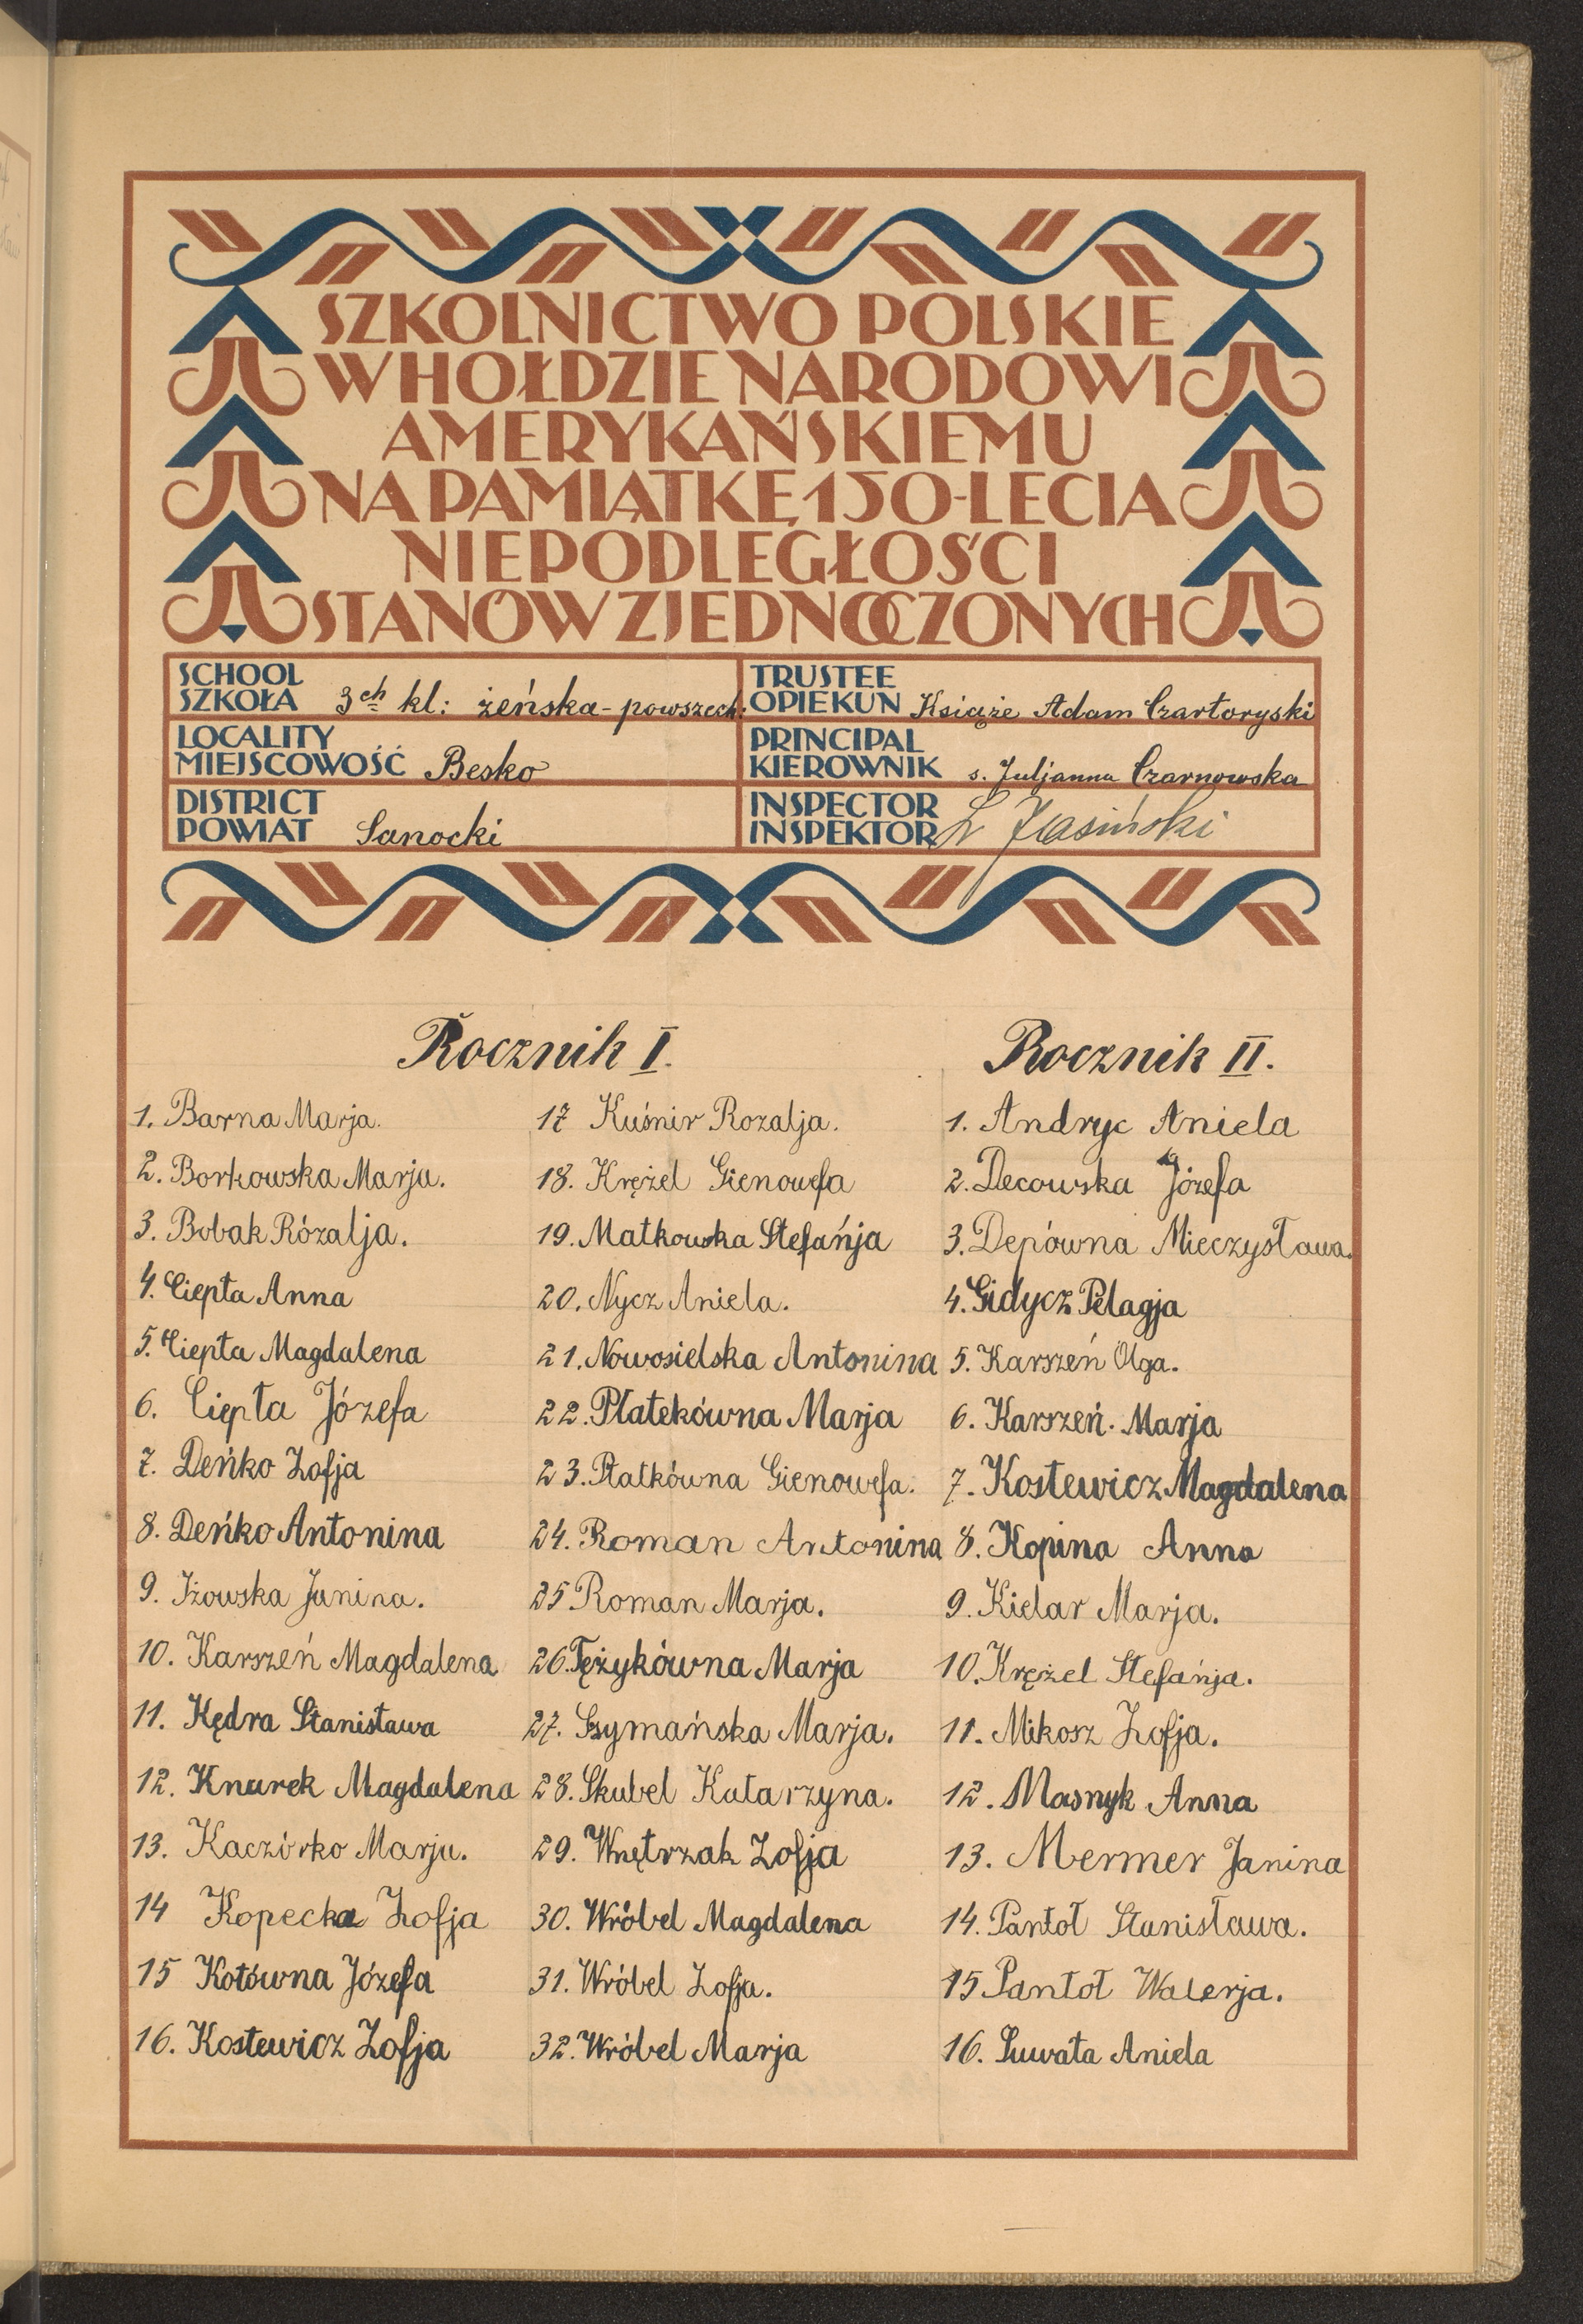 SZKOLNICTWO POLSKIE
W HOŁDZIE NARODOWI
AMERYKAŃSKIEMU
NA PAMIĄTKĘ 150-LECIA
NIEPODLEGŁOŚCI
STANÓW ZJEDNOCZONYCH
SCHOOL
SZKOŁA 3ch kl: żeńska-powszech:
TRUSTEE
OPIEKUN Książe Adam Czartoryski
LOCALITY
MIEJSCOWOŚĆ Besko
PRINCIPAL
KIEROWNIK s. Juljanna Czarnowska
DISTRICT
POWIAT Sanocki
INSPECTOR
INSPEKTOR
Rocznik I.
1. Barna Marja.
2. Borkowska Marja.
3. Bobak Rózalja.
4. Ciepła Anna
5. Ciepła Magdalena
6. Ciepła Józefa
7. Deńko Zofja
8. Deńko Antonina
9. Iżowska Janina.
10. Karszeń Magdalena
11. Kędra Stanisława
12. Knurek Magdalena
13. Kaczórko Marja.
14 Kopecka Zofja
15 Kotówna Józefa
16. Kostewicz Zofja
17 Kuśnir Rozalja.
18. Krężel Gienowefa
19. Matkowska Stefańja
20. Nycz Aniela.
21. Nowosielska Antonina
22. Płatekówna Marja
23. Płatkówna Gienowefa.
24. Roman Antonina
25 Roman Marja.
26. Tężykówna Marja
27. Szymańska Marja.
28. Skubel Katarzyna.
29. Wnętrzak Zofja
30. Wróbel Magdalena
31. Wróbel Zofja.
32. Wróbel Marja
Rocznik II.
1. Andryc Aniela
2. Decowska Józefa
3. Depówna Mieczysława.
4. Gidycz Pelagja
5. Karszeń Olga.
6. Karszeń. Marja
7. Kostewicz Magdalena
8. Kopina Anna
9. Kielar Marja.
10. Krężel Stefańja.
11. Mikosz Zofja.
12. Masnyk Anna
13. Mermer Janina
14. Pantoł Stanisława.
15 Pantoł Walerja.
16. Suwała Aniela